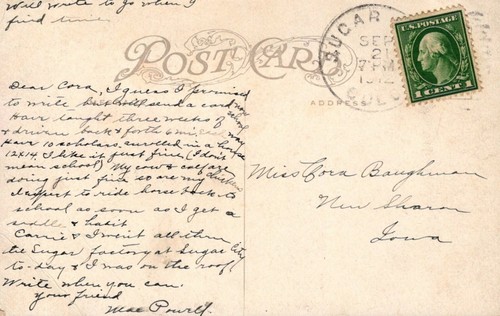 Will write to you when I
find time.
POST CARD
ADDRESS
SUGAR
SEP
21
7 PM
COLO
U.S. POSTAGE
1 CENT 1
Dear Cora, I guess I promised
to write but will send a card now
Have taught three weeks of school
& driven back & forth 6 mi. each way
Have 10 scholars enrolled in a house
12X14. I like it just fine (I don't
mean school). My cow & calf are
doing just fine so are my chickens
I expect to ride horse back to
school as soon as I get a
saddle & habit
Carrie & I went all thru
the Sugar factory at Sugar City
to-day & I was on the roof
Write when you can.
Your friend
Mae Powell.
Miss Cora Baughman
New Sharon
Iowa